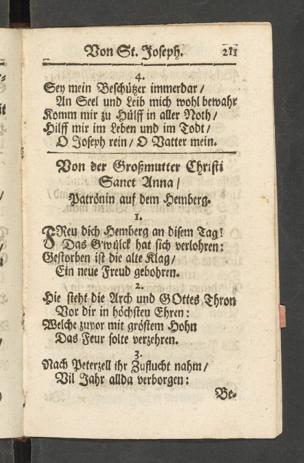 Von St. Joseph. 211
4.
Sey mein Beschützer immerdar /
An Seel und Leib mich wohl bewahr
Komm mir zu Hülff in aller Noth /
Hilff mir im Leben und im Todt /
O Joseph rein / O Vatter mein.
Von der Großmutter Christi
Sanct Anna /
Patrönin auf dem Hemberg.
1.
FReu dich Hemberg an disem Tag!
Das Gwülck hat sich verlohren:
Gestorben ist die alte Klag /
Ein neue Freud gebohren.
2.
Hie steht die Arch und GOttes Thron
Vor dir in höchsten Ehren:
Welche zuvor mit gröstem Hohn
Das Feur solte verzehren.
3.
Nach Peterzell ihr Zuflucht nahm /
Vil Jahr allda verborgen:
Be-